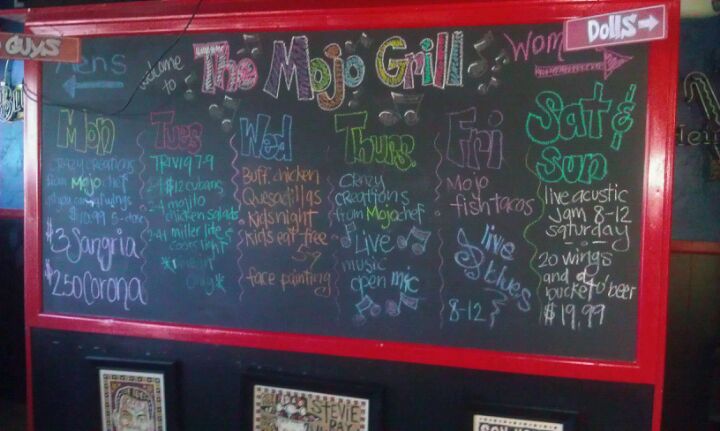 GUYS
DOLLS
Mens
welcome to
The Mojo Grill
Mon
crazy creations
from Mojo chef
all you can eat wings
$10.99 5-close
$3 Sangria
$2.50 Corona
Tues
TRIVIA 7-9
$12 cubans
2-4 mojito
chicken salads
2-4 miller lite &
coors light
only*
Wed
Buff. chicken
Quesadillas
Kids night
kids eat free
5-9
face painting
Thurs
crazy
creations
from Mojo chef
Live
music
open mic
Fri
Mojo
fish tacos
live
blues
8-12
Sat &
Sun
live acustic
Jam 8-12
saturday
20 wings
and a
bucket o' beer
$19.99
STEVIE
RAY
SON